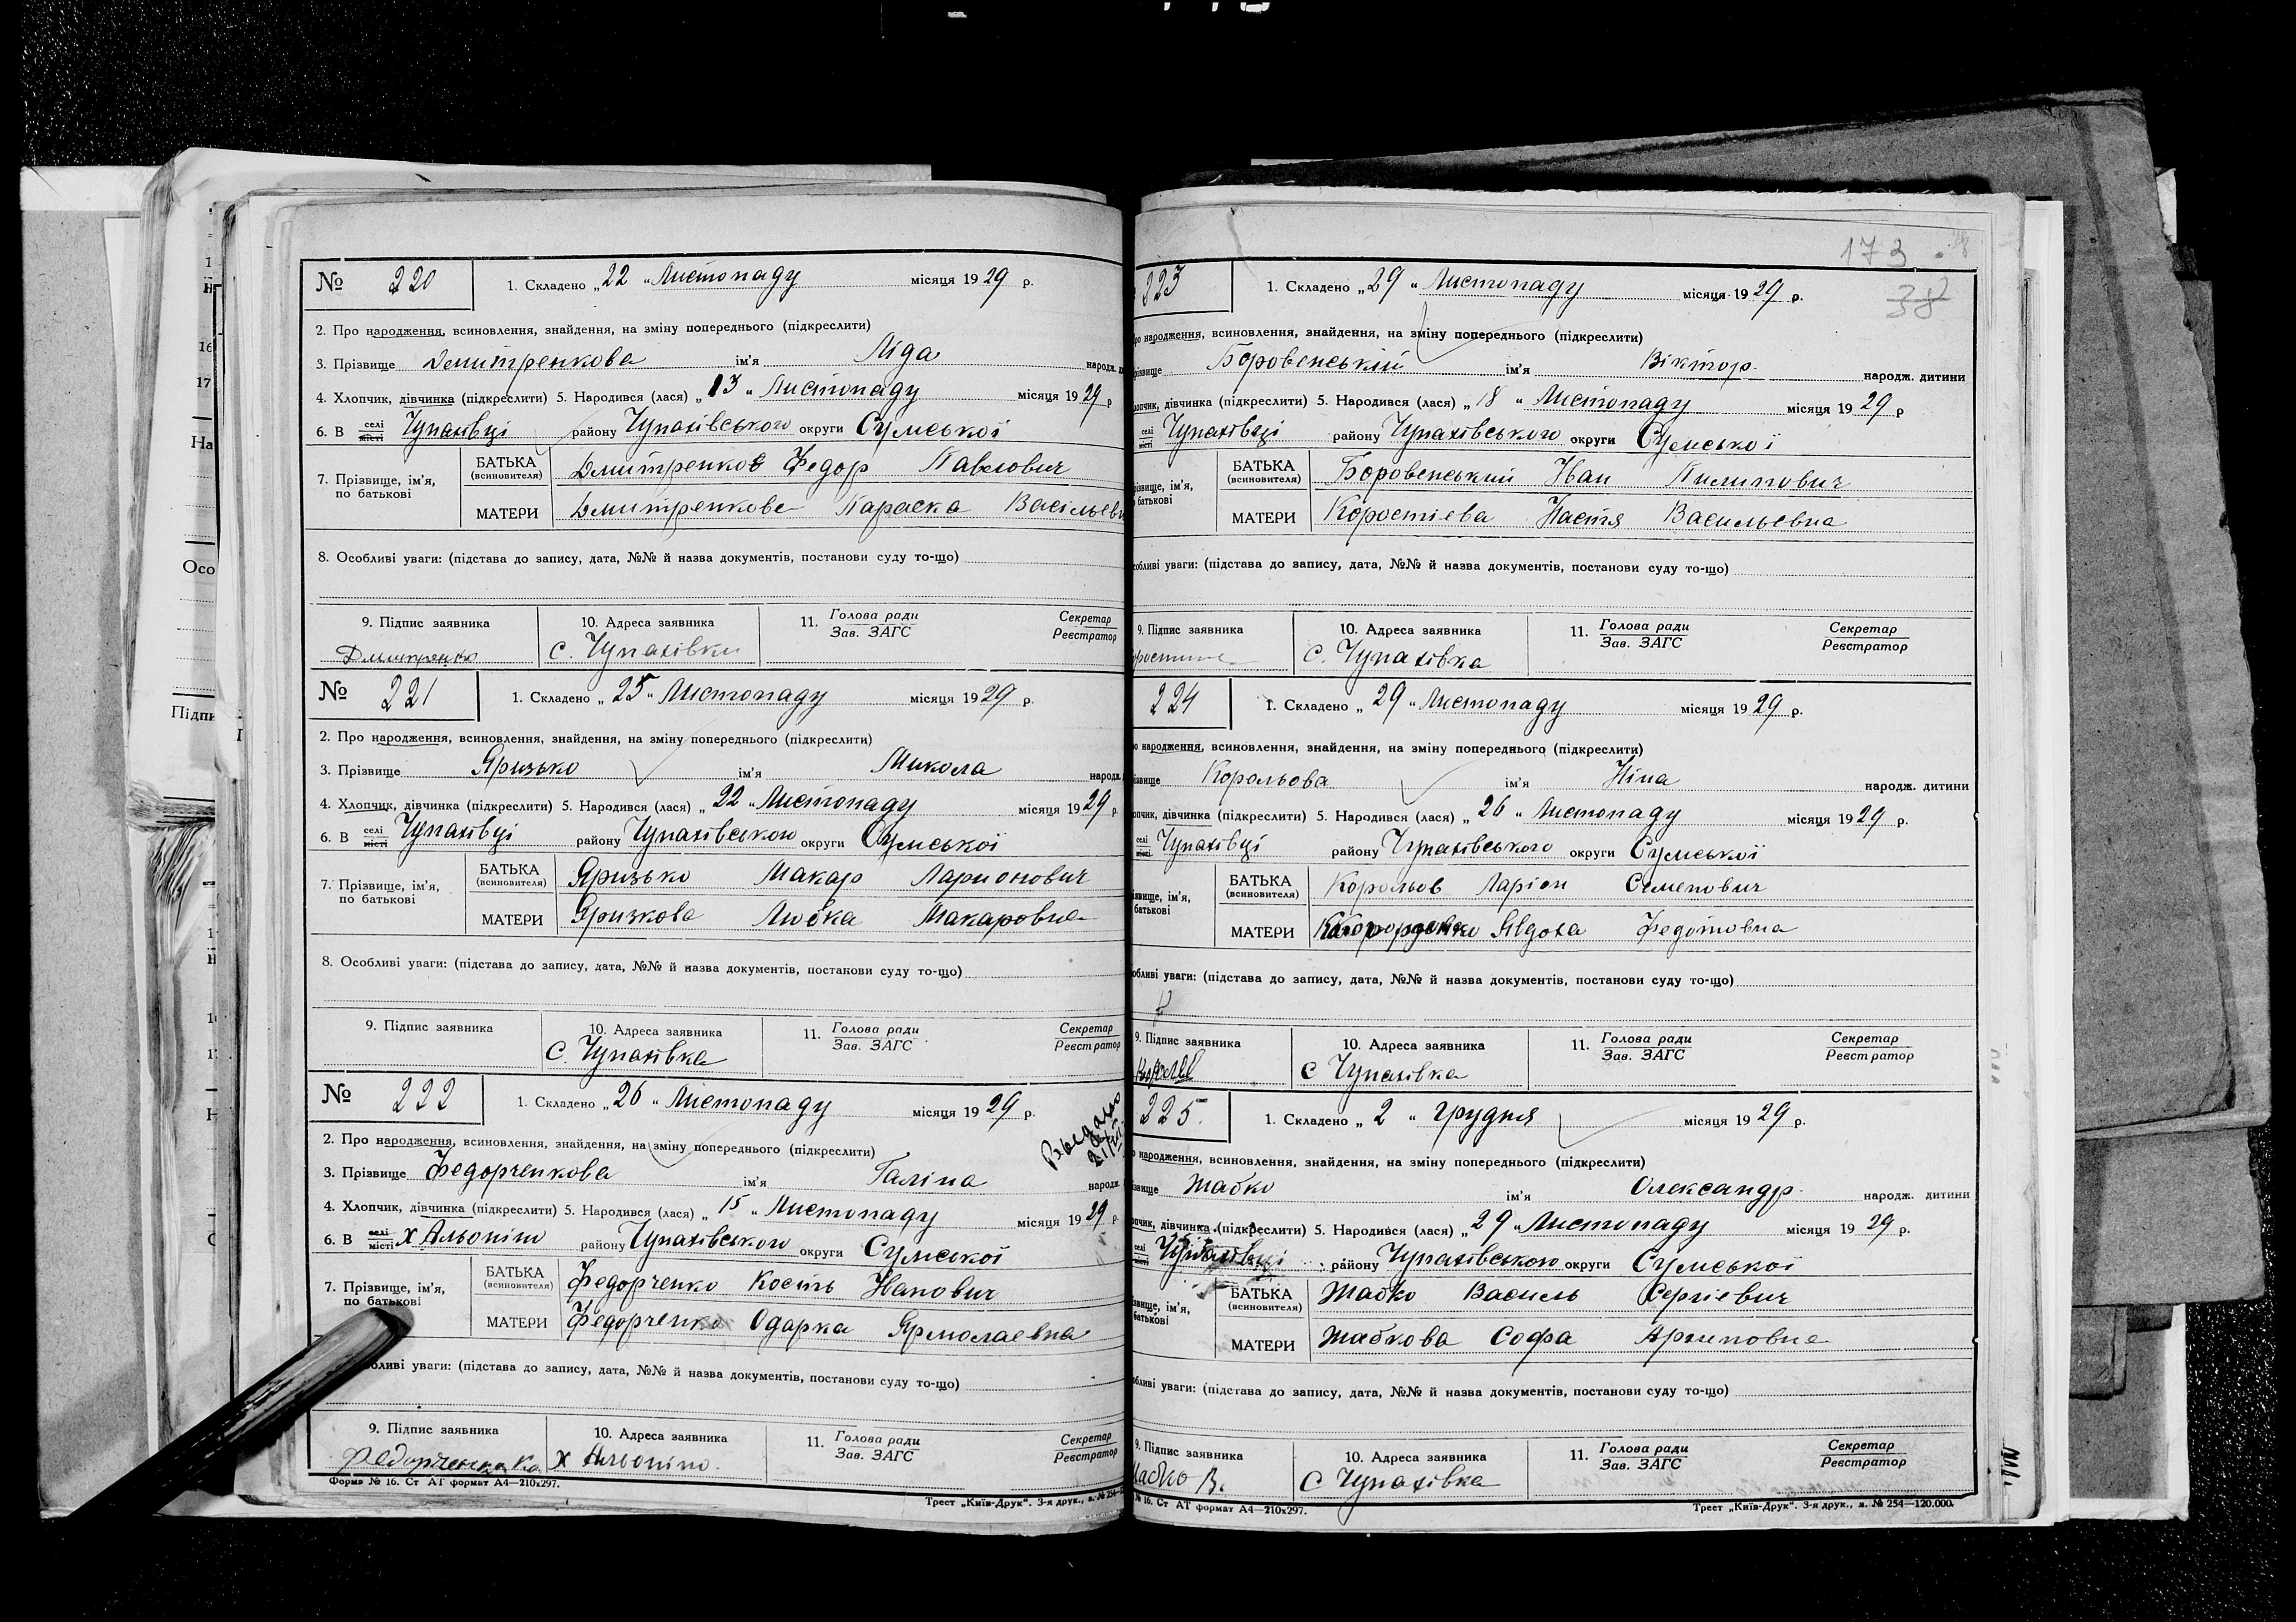 № 220 1. Складено „22“ Листопаду місяця 1929 р.
2. Про народження, всиновлення, знайдення, на зміну попереднього (підкреслити)
3. Прізвище Дмитренкова ім'я Ліда народж.
4. Хлопчик, дівчинка (підкреслити) 5. Народився (лася) „13“ Листопаду місяця 1929 р
6. В селі місті Чупахівці району Чупахівського округи Сумської
7. Прізвище, ім'я, по батькові
БАТЬКА (всиновителя) Дмитренков Федор Павлович
МАТЕРИ Дмитренкова Параска
8. Особливі уваги: (підстава до запису, дата, №№ й назва документів, постанови суду то-що)
9. Підпис заявника 10. Адреса заявника 11. Голова ради Зав. ЗАГС Секретар Реєстратор
с. Чупахівки
№ 221 1. Складено „25“ Листопаду місяця 1929 р.
2. Про народження, всиновлення, знайдення, на зміну попереднього (підкреслити)
3. Прізвище Яризько ім'я Микола народж.
4. Хлопчик, дівчинка (підкреслити) 5. Народився (лася) „22“ Листопаду місяця 1929 р.
6. В селі місті Чупахівці району Чупахівського округи Сумської
7. Прізвище, ім'я, по батькові
БАТЬКА (всиновителя) Яризько Макар Ларионович
МАТЕРИ Яризкова Любка Макаровна
8. Особливі уваги: (підстава до запису, дата, №№ й назва документів, постанови суду то-що)
9. Підпис заявника 10. Адреса заявника 11. Голова ради Зав. ЗАГС Секретар Реєстратор
С. Чупахівка
№ 222 1. Складено „26“ Листопаду місяця 1929 р.
2. Про народження, всиновлення, знайдення, на зміну попереднього (підкреслити)
3. Прізвище Федорченкова ім'я Галіна народж.
4. Хлопчик, дівчинка (підкреслити) 5. Народився (лася) „15“ Листопаду місяця 1929 р.
6. В селі місті х Альопіно району Чупахівського округи Сумської
7. Прізвище, ім'я, по батькові
БАТЬКА (всиновителя) Федорченко Кость Иванович
МАТЕРИ Федорченко Одарка Ярмолаевна
уваги: (підстава до запису, дата, №№ й назва документів, постанови суду то-що)
9. Підпис заявника 10. Адреса заявника 11. Голова ради Зав. ЗАГС Секретар Реєстратор
х Альопіно.
Форма № 16. Ст АТ формат А4—210х297.
Трест „Київ-Друк“. 3-я друк., з. № 254
173
38
223 1. Складено „29“ Листопаду місяця 1929 р.
народження, всиновлення, знайдення, на зміну попереднього (підкреслити)
Боровенський ім'я Віктор. народж. дитини
дівчинка (підкреслити) 5. Народився (лася) „18“ Листопаду місяця 1929 р
селі місті Чупахівці району Чупахівського округи Сумської
ім'я, батькові
БАТЬКА (всиновителя) Боровенський Иван Пилипович
МАТЕРИ Коростіева Настя Васильевна
уваги: (підстава до запису, дата, №№ й назва документів, постанови суду то-що)
9. Підпис заявника 10. Адреса заявника 11. Голова ради Зав. ЗАГС Секретар Реєстратор
с. Чупахівка
224 1. Складено „29“ Листопаду місяця 1929 р.
народження, всиновлення, знайдення, на зміну попереднього (підкреслити)
Корольова ім'я Ніна народж. дитини
дівчинка (підкреслити) 5. Народився (лася) „26“ Листопаду місяця 1929 р.
селі місті Чупахівці району Чупахівського округи Сумської
ім'я, батькові
БАТЬКА (всиновителя) Корольов Ларіон Семенович
МАТЕРИ Явдоха Федотовна
уваги: (підстава до запису, дата, №№ й назва документів, постанови суду то-що)
9. Підпис заявника 10. Адреса заявника 11. Голова ради Зав. ЗАГС Секретар Реєстратор
с Чупахівка
225. 1. Складено „2“ Грудня місяця 1929 р.
народження, всиновлення, знайдення, на зміну попереднього (підкреслити)
Жабко ім'я Олександр. народж. дитини
дівчинка (підкреслити) 5. Народився (лася) „29“ Листопаду місяця 1929 р.
селі місті Чупахівці району Чупахівського округи Сумської
ім'я, батькові
БАТЬКА (всиновителя) Жабко Василь Сергіевич
МАТЕРИ Жабкова Софа Архиповна
уваги: (підстава до запису, дата, №№ й назва документів, постанови суду то-що)
9. Підпис заявника 10. Адреса заявника 11. Голова ради Зав. ЗАГС Секретар Реєстратор
В. С Чупахівка
№ 16. Ст АТ формат А4—210х297.
Трест „Київ-Друк“. 3-я друк., з. № 254—120.000.